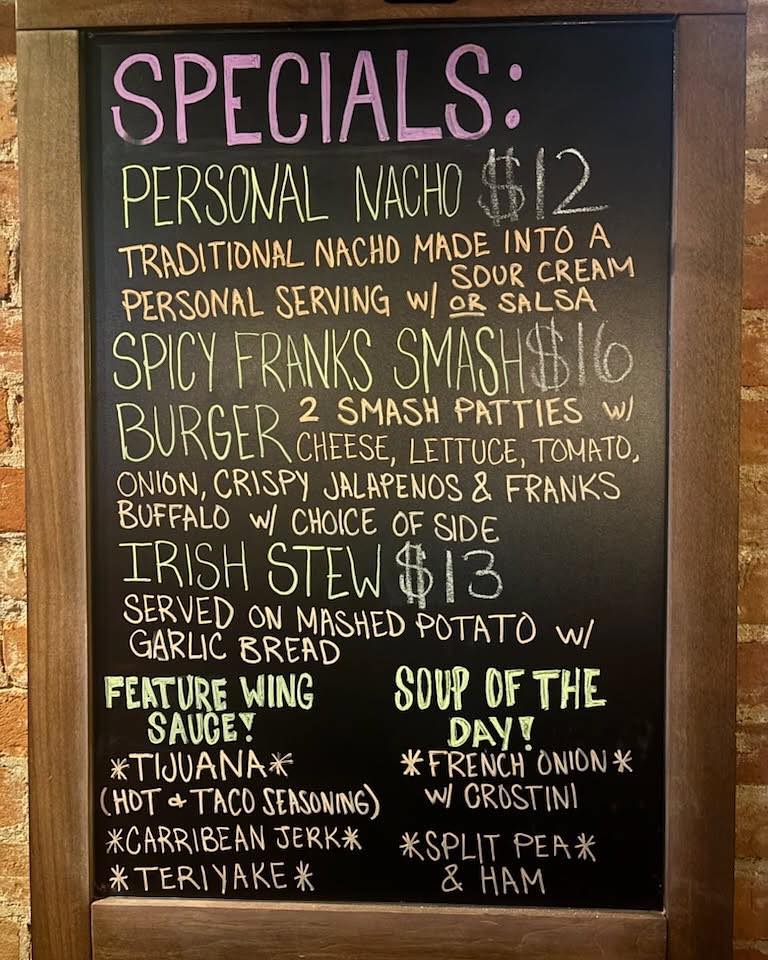 SPECIALS:
PERSONAL NACHO $12
TRADITIONAL NACHO MADE INTO A
PERSONAL SERVING W/ SOUR CREAM
OR SALSA
SPICY FRANKS SMASH $16
BURGER 2 SMASH PATTIES W/
CHEESE, LETTUCE, TOMATO,
ONION, CRISPY JALAPENOS & FRANKS
BUFFALO W/ CHOICE OF SIDE
IRISH STEW $13
SERVED ON MASHED POTATO W/
GARLIC BREAD
FEATURE WING
SAUCE!
*TIJUANA*
(HOT & TACO SEASONING)
*CARRIBEAN JERK*
*TERIYAKE*
SOUP OF THE
DAY!
*FRENCH ONION*
W/ CROSTINI
*SPLIT PEA*
& HAM